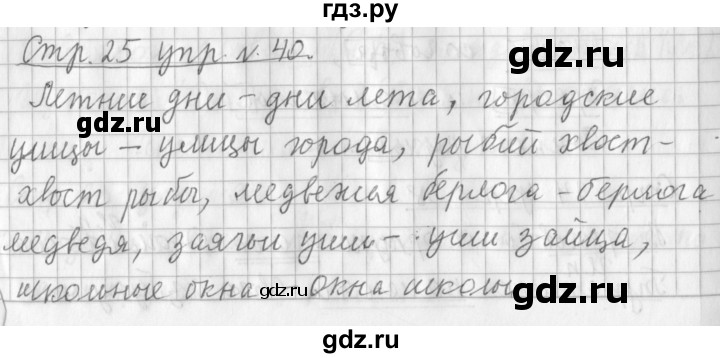 гдз.ру
Стр. 25 упр. N. 40.
Летние дни – дни лета, городские
gdz.ru
gdz.ru
улицы – улицы города, рыбий хвост –
хвост рыбы, медвежья берлога – берлога
медведя, заячьи уши – уши зайца,
школьные окна gdz.ru Окна школы gdz.ru
gdz.ru